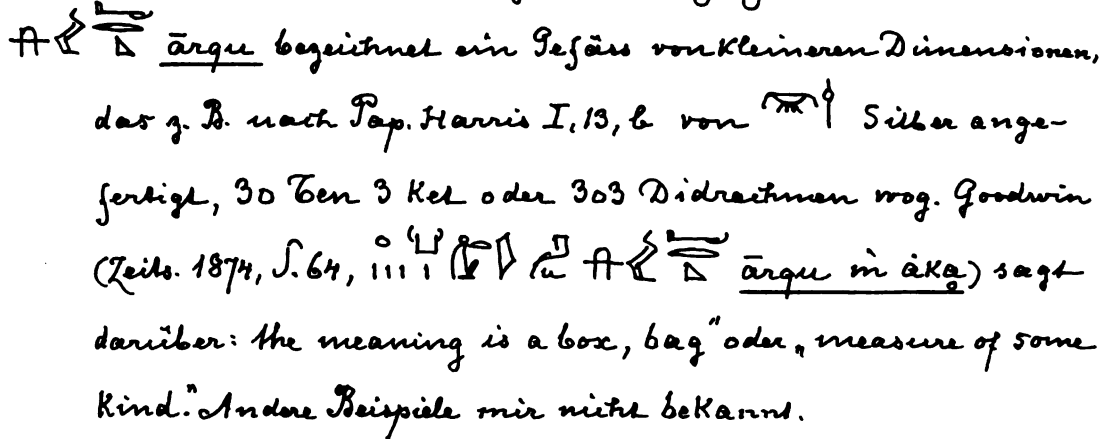 ārqu bezeichnet ein Gefäss von kleineren Dimensionen,
das z. B. nach Pap. Harris I, 13, b von Silber ange-
fertigt, 30 Ten 3 Ket oder 303 Didrachmen wog. Goodwin
(Zeits. 1874, S. 64, ārqu m) sagt
darüber: the meaning is a box, bag" oder „measure of some
kind." Andere Beispiele mir nicht bekannt.